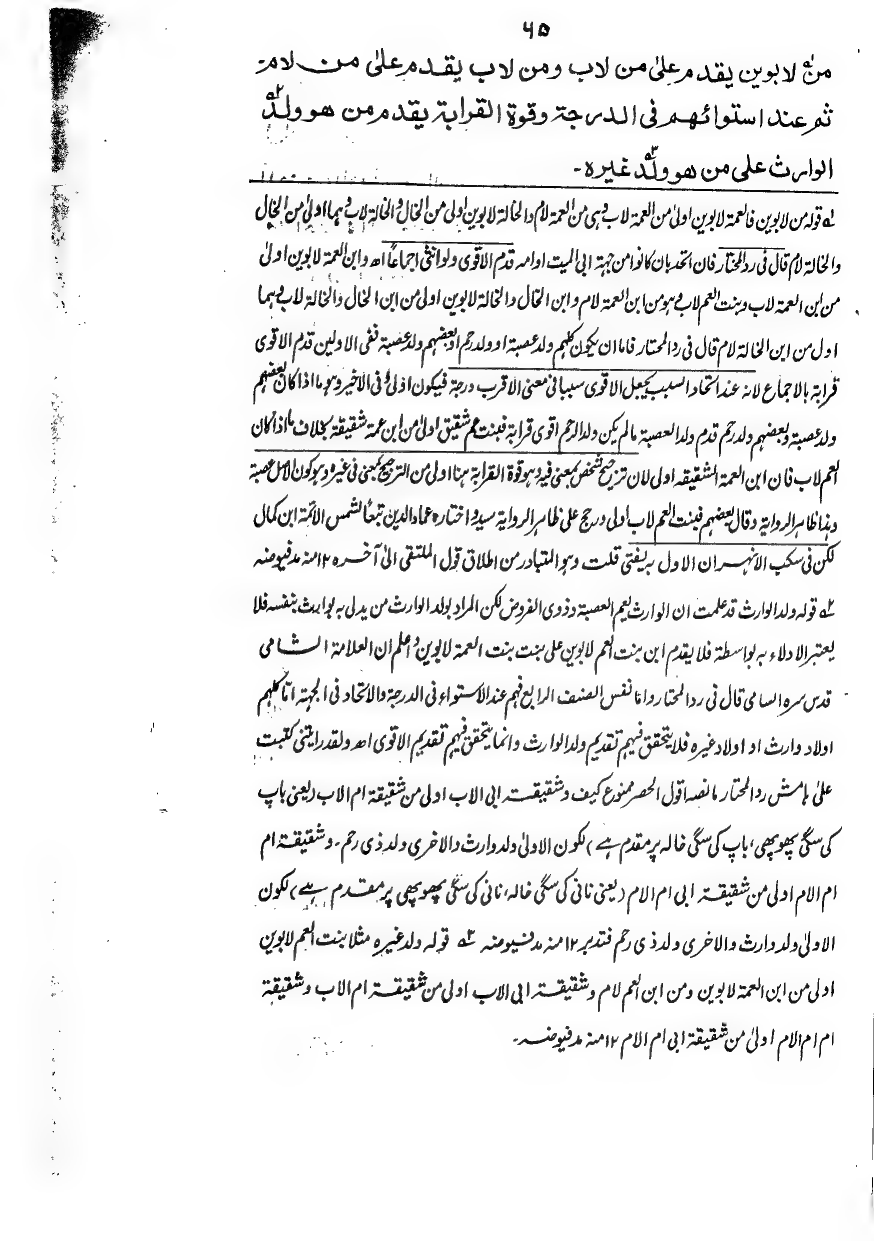 ٦٥
من لابوين يقدم على من لاب ومن لاب يقدم على من لام۔
ثم عند استوائهم فى الدرجة وقوة القرابة يقدم من هو ولد
الوارث على من هو ولد غيره۔
١ه قوله من لابوين فالعمة لابوين اولىٰ من العمة لاب وهى من العمة لام والخالة لابوين اولى من الخال والخالة لاب وهما اولىٰ من الخال
والخالة لام قال فى رد المختار فان اتحد بان كانوا من جهة ابى الميت او امه قدم الاقوى ولو انثىٰ اجماعاً اھ وابن العمة لابوين اولىٰ
من ابن العمة لاب وبنت العم لاب وهو من ابن العمة لام وابن الخال والخالة لابوين اولى من ابن الخال والخالة لاب وهما
اولى من ابن الخالة لام قال فى رد المحتار فاما ان يكون كلهم ولد عصبة او ولد رحم او بعضهم ولد عصبة ففى الاولين قدم الاقوى
قرابة بالاجماع لانه عند اتحاد السبب يجعل الاقوى سببا فى معنى الاقرب درجة فيكون اولىٰ وفى الاخير وهو ما اذا كان بعضهم
ولد عصبة وبعضهم ولد رحم قدم ولد العصبة مالم يكن ولد الرحم اقوى قرابة فبنت عم شقيق اولىٰ من ابن عمة شقيقة بخلاف ما اذا كان
العم لاب فان ابن العمة الشقيقه اولى لان ترجيح شخص بمعنى فيه وهو قوة القرابة هنا اولى من الترجيح بمعنى فى غيره وهو كون الاصل عصبة
وهذا ظاهر الرواية وقال بعضهم فبنت العم لاب اولى ورجح على ظاهر الرواية سيد واختاره عماد الدين تبعاً لشمس الائمة ابن كمال
لكن فى سكب الانهر ان الاول به يفتى قلت وهو المتبادر من اطلاق قول الملتقى الىٰ آخره ١٢ منه مد فيوضه
٢ه قوله ولد الوارث قد علمت ان الوارث يعم العصبة وذوى الفروض لكن المراد بولد الوارث من يدلى به بوارث بنفسه فلا
يعتبر الادلاء به بواسطة فلا يقدم ابن بنت العم لابوين على بنت بنت العمة لابوين واعلم ان العلامة الشامى
قدس سره السامى قال فى رد المحتار واما نفس الصنف الرابع فهم عند الاستواء فى الدرجة والاتحاد فى الجهة اما كلهم
اولاد وارث او اولاد غيره فلا يتحقق فيهم تقديم ولد الوارث وانما يتحقق فيهم تقديم الاقوى اھ ولقد رايتنى كتبت
علىٰ هامش رد المحتار مانصه اقول الحصر ممنوع كيف وشقيقة ابى الاب اولى من شقيقة ام الاب (يعنى باپ
كى سگى پھوپھى، باپ كى سگى خالہ پر مقدم ہے) لكون الاولىٰ ولد وارث والاخرى ولد ذى رحم۔ وشقيقة ام
ام الام اولىٰ من شقيقة ابى ام الام (يعنى نانى كى سگى خالہ، نانى كى سگى پھوپھى پر مقدم ہے) لكون
الاولىٰ ولد وارث والاخرى ولد ذى رحم فتدبر ١٢ منه مد فيوضه ٣ه قوله ولد غيره مثلا بنت العم لابوين
اولى من ابن العمة لابوين ومن ابن العم لام وشقيقة ابى الاب اولى من شقيقة ام الاب وشقيقة
ام ام الام اولىٰ من شقيقة ابى ام الام ١٢ منه مد فيوضه۔